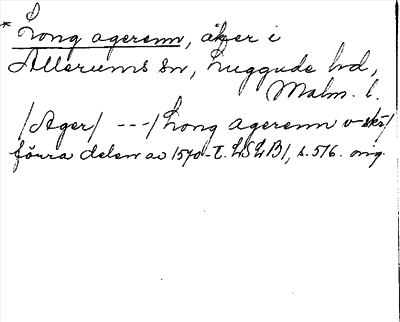 * Long agerenn, åker i
Allerums sn, Luggude hd,
Malm. l.
/Ager/ ---/Long agerenn v-skr/
förra delen av 1570-t. LSLB1, s. 576. orig.